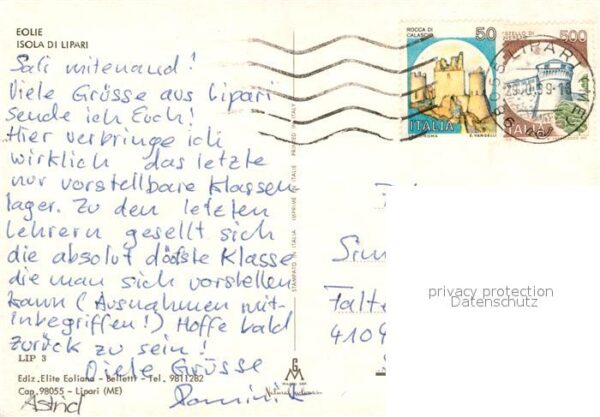 EOLIE
ISOLA DI LIPARI
Sali mitenand!
Viele Grüsse aus Lipari
sende ich Euch!
Hier verbringe ich
wirklich das letzte
nur vorstellbare Klassen
lager. Zu den letzten
Lehrern gesellt sich
die absolut döfste Klasse
die man sich vorstellen
kann (Ausnahmen mit-
inbegriffen!) Hoffe bald
zurück zu sein!
Viele Grüsse
Astrid
LIP 3
Ediz. Elite Eoliana - Belletti - Tel. 9811282
Cap. 98055 - Lipari (ME)
STAMPATO IN ITALIA
IMPRIME EN ITALIE
PRINTED IN ITALY
ROCCA DI
CALASCIO
50
ITALIA
E. VANGELLI
500
LIPARI
98
Falt
4109
privacy protection
Datenschutz